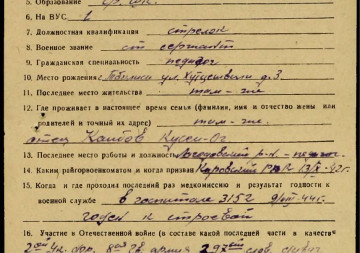 5. Образование ср. шк.
6. На ВУС 1
7. Должностная квалификация стрелок
8. Военное звание ст сержант
9. Гражданская специальность педагог
10. Место рождения Тбилиси ул д. 3
11. Последнее место жительства там-же
12. Где проживает в настоящее время семья (фамилия, имя и отчество жены или
родителей и точный их адрес) там-же.
отец
13. Последнее место работы и должность р-н
14. Каким райгорвоенкоматом и когда призван РВК 42 г.
15. Когда и где проходил последний раз медкомиссию и результат годности к
военной службе в госпитале 3152 44 г.
годен к строевой
16. Участие в Отечественной войне (в составе какой последней части в качестве
армия